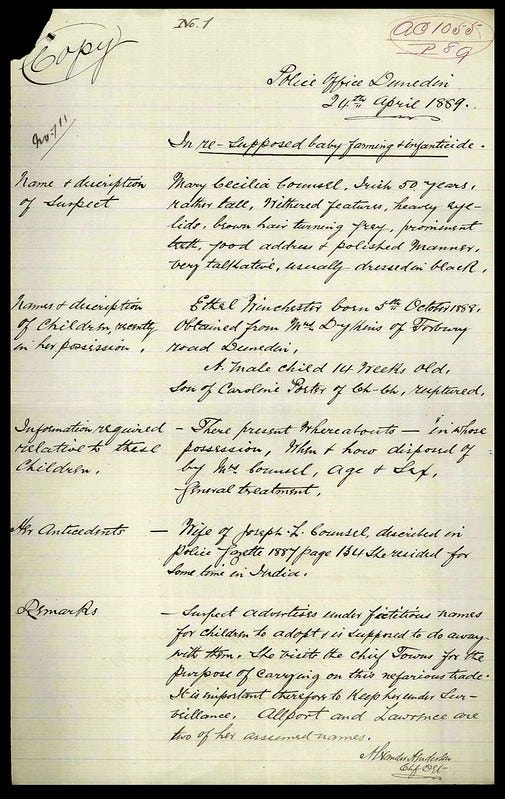 No. 1
Copy
AO 1055
P 89
Police Office Dunedin
24th April 1889.
No. 711
In re - Supposed baby farming & infanticide.
Name & discription
of Suspect
Mary Cecilia Counsel, Irish 50 years,
rather tall, Withered features, heavy eye-
lids, brown hair turning grey, prominent
teeth, good address & polished Manner,
very talkative, usually dressed in black.
Names & discription
of Children, recently
in her possession.
Ethel Winchester born 5th October 1888,
Obtained from Mrs Dykins of Forbury
road Dunedin,
A Male child 14 Weeks old,
Son of Caroline Porter of Ch-Ch, ruptured.
Information required
relative to these
Children.
- There present Whereabouts — in whose
possession, When & how disposed of
by Mrs Counsel, Age & Sex,
General treatment.
Her Antecedents
— Wife of Joseph L. Counsel, discribed in
Police Gazette 1887 page 134 She resided for
Some time in India.
Remarks
- Suspect advertises under fictitious names
for children to adopt & is supposed to do away
with them. She visits the chief Towns for the
purpose of carrying on this nefarious trade.
It is important therefore to Keep her under Sur-
veillance. Allport and Lawrence are
two of her assumed names.
Alexander Anderson
Chf. Det.